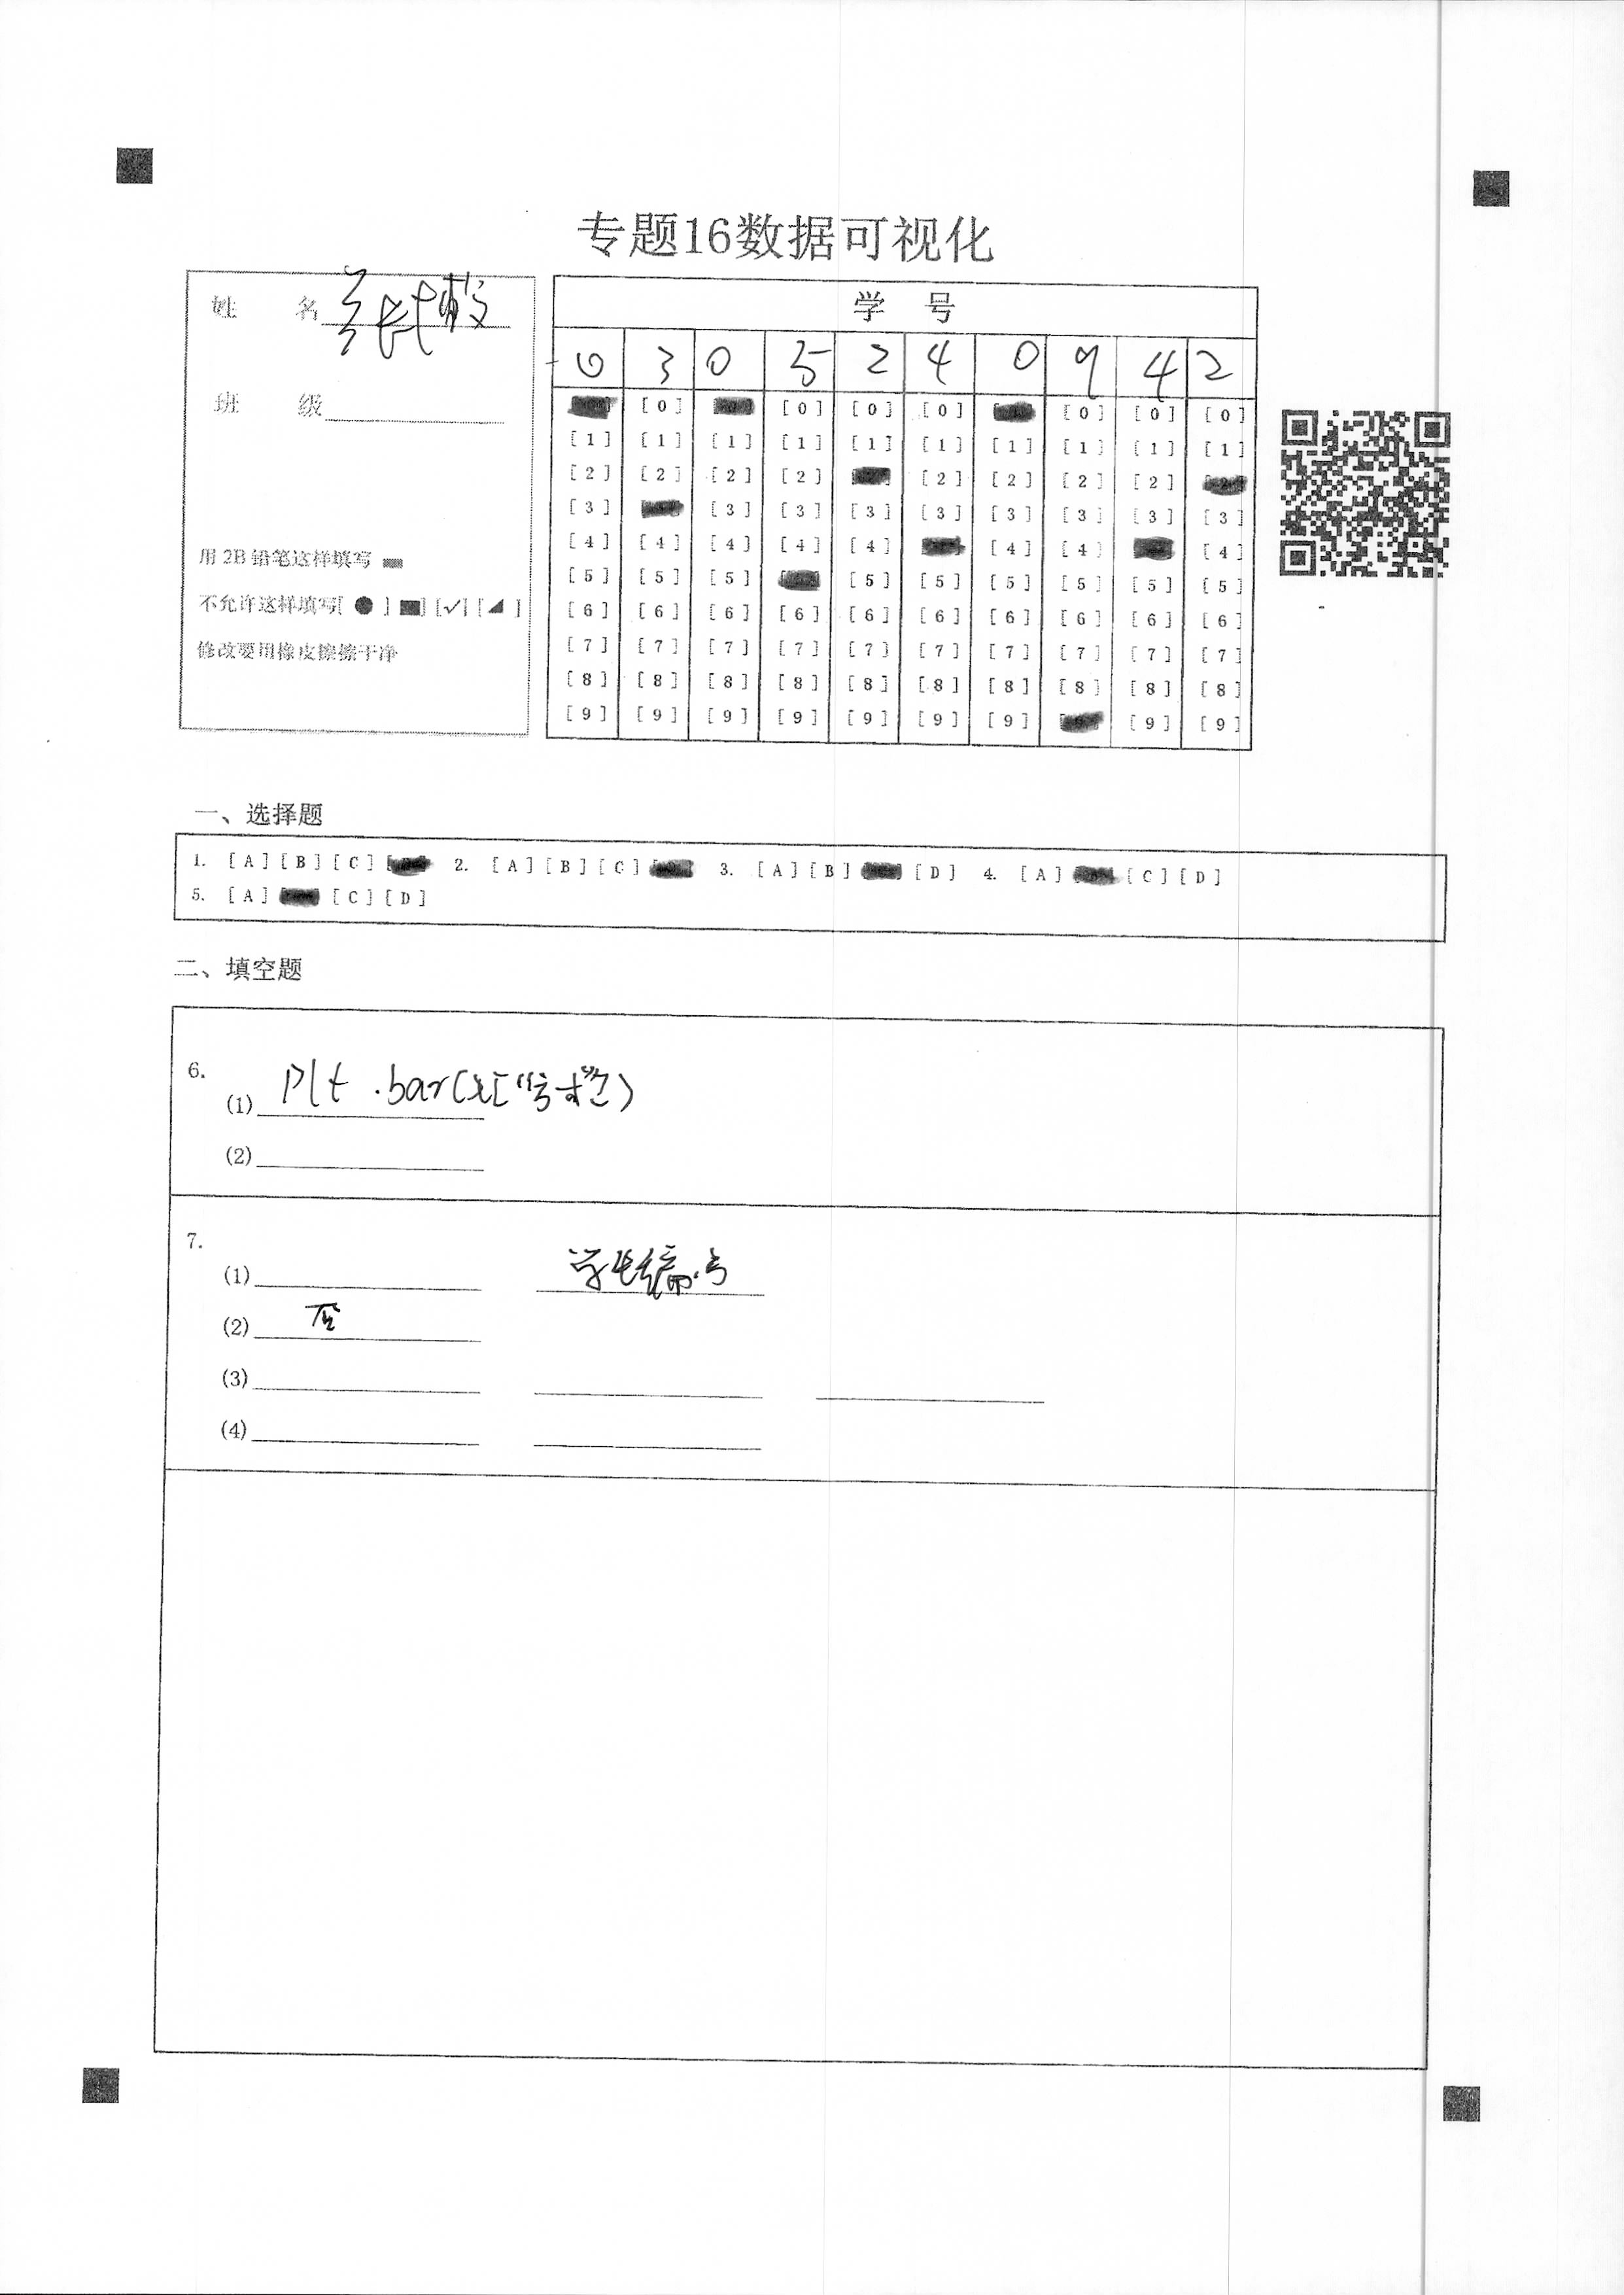 专题16数据可视化
姓 名
班 级
用 2B 铅笔这样填写
不允许这样填写[ ● ] ■] [✓] [◢ ]
修改要用橡皮擦擦干净
学 号
0 3 0 5 2 4 0 9 4 2
[0] [0] [0] [0] [0] [0] [0]
[1] [1] [1] [1] [1] [1] [1] [1] [1] [1]
[2] [2] [2] [2] [2] [2] [2] [2]
[3] [3] [3] [3] [3] [3] [3] [3] [3]
[4] [4] [4] [4] [4] [4] [4] [4]
[5] [5] [5] [5] [5] [5] [5] [5] [5]
[6] [6] [6] [6] [6] [6] [6] [6] [6] [6]
[7] [7] [7] [7] [7] [7] [7] [7] [7] [7]
[8] [8] [8] [8] [8] [8] [8] [8] [8] [8]
[9] [9] [9] [9] [9] [9] [9] [9] [9]
一、选择题
1. [A] [B] [C] 2. [A] [B] [C] 3. [A] [B] [D] 4. [A] [C] [D]
5. [A] [C] [D]
二、填空题
6.
(1) plt .bar(x["
(2)
7.
(1) 学生编号
(2) 否
(3)
(4)